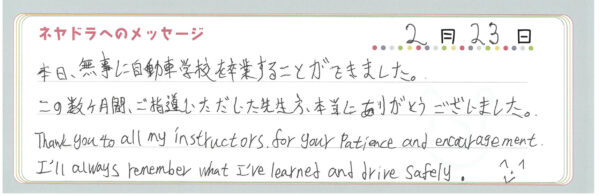 ネヤドラへのメッセージ 2月23日
本日、無事に自動車学校を卒業することができました。
この数ヶ月間、ご指導いただいた先生方、本当にありがとうございました。
Thank you to all my instructors for your patience and encouragement.
I'll always remember what I've learned and drive safely.